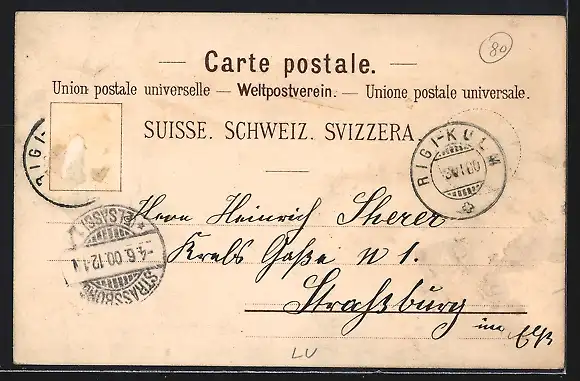 80
— Carte postale. —
Union postale universelle — Weltpostverein. — Unione postale universale.
SUISSE. SCHWEIZ. SVIZZERA.
RIGI-KULM
RIGI-
STRASSBURG
(ELSASS)
-4.6.00.12-1
Herrn Heinrich Sherer
Krebs Gaße N 1.
Straßburg
im Elß
LU